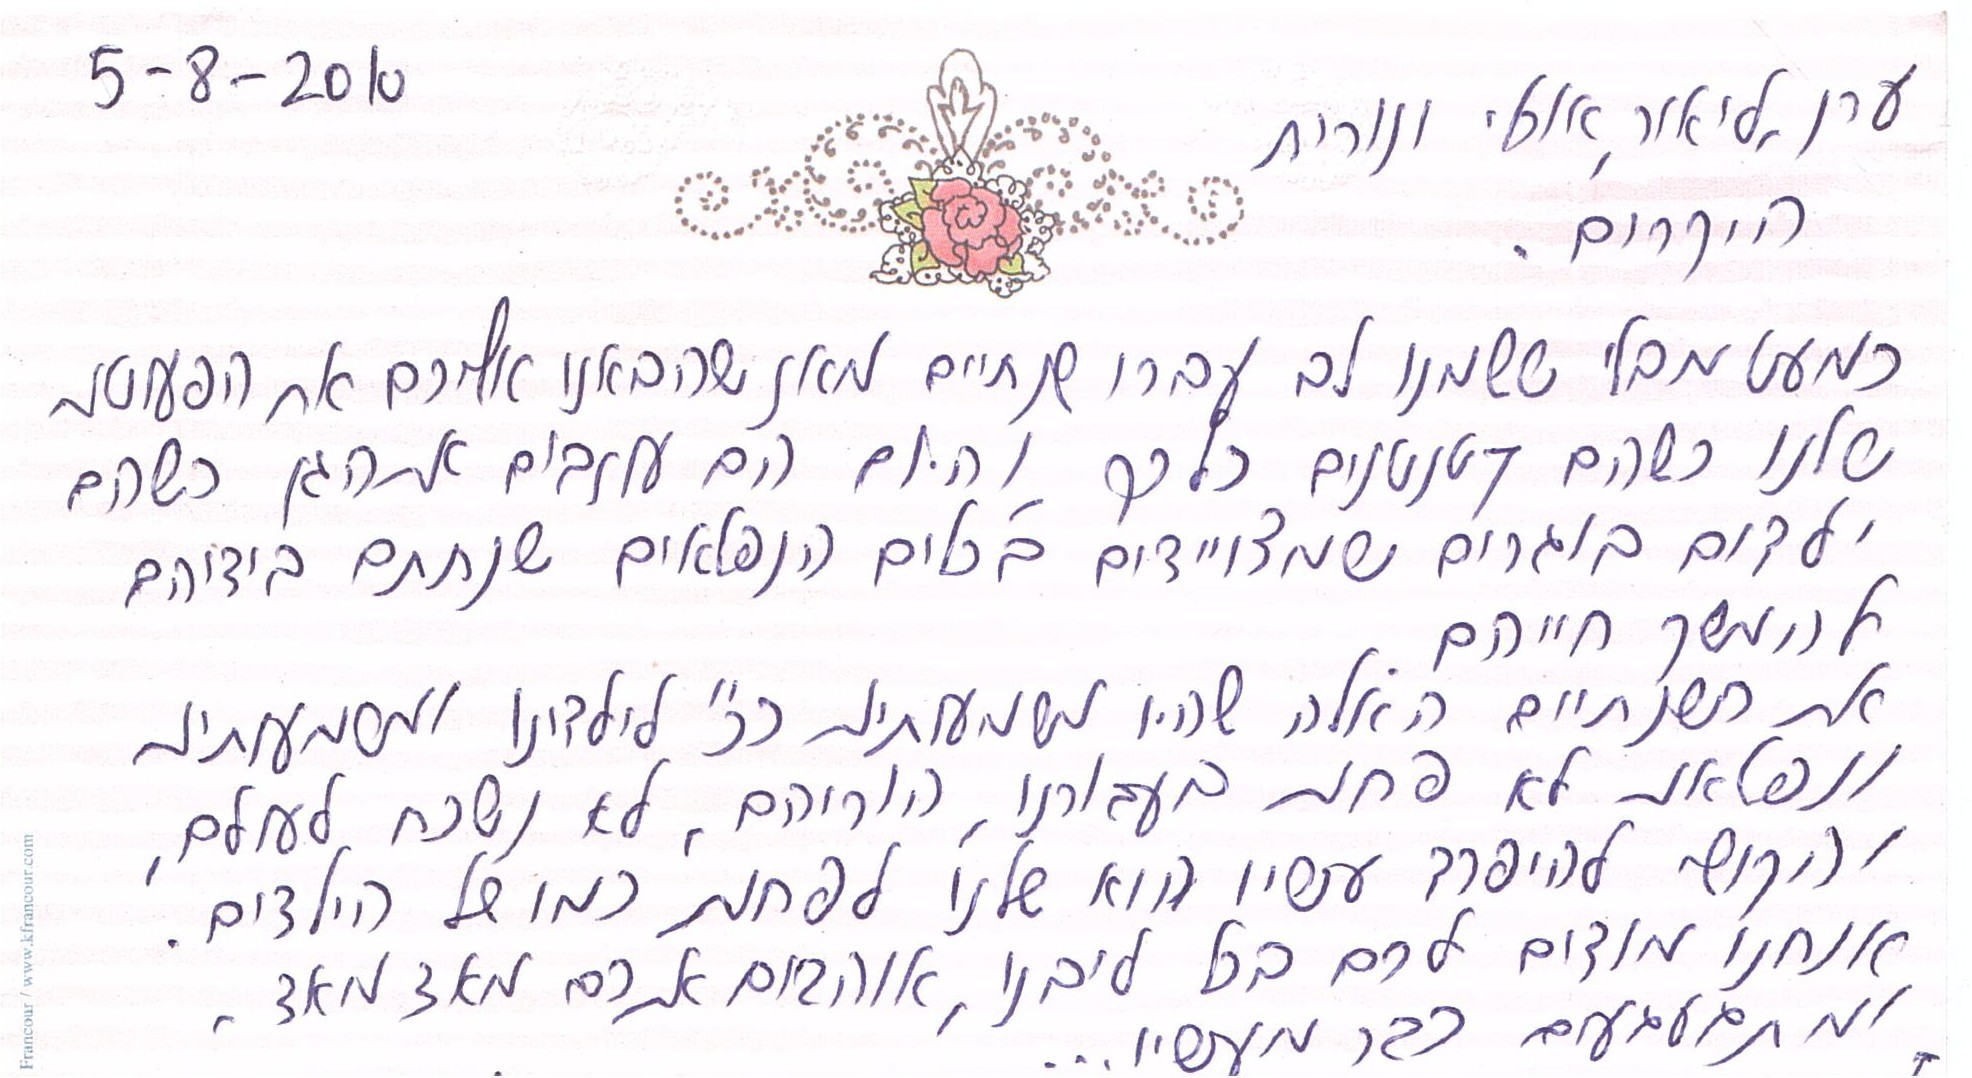 5-8-2010
ערן, ליאור, אולי ונורית
היקרים.
כמעט מבלי ששמנו לב עברו שנתיים מאז שהבאנו אליכם את הפעוטות
שלנו כשהם קטנטנים כל כך והיום הם עוזבים את הגן כשהם
ילדים בוגרים שמצויידים בכלים הנפלאים שנתתם בידיהם
להמשך חייהם
את השנתיים האלה שהיו משמעותיות כ"כ לילדינו ומשמעותיות
ונפלאות לא פחות בעבורנו, הוריהם, לא נשכח לעולם
והקושי להיפרד עכשיו הוא שלנו לפחות כמו של הילדים.
אנחנו מודים לכם בכל ליבנו, אוהבים אתכם מאד מאד,
ומתגעגעים כבר מעכשיו...
Francour / www.kfrancour.com